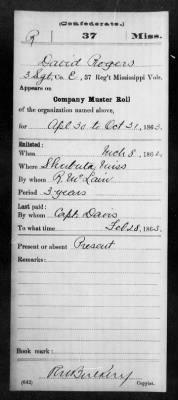 (Confederate.)
R 37 Miss.
David Rogers
3 Sgt, Co. C, 37 Reg't Mississippi Vols.
Appears on
Company Muster Roll
of the organization named above,
for Apl 30 to Oct 31, 1863.
Enlisted:
When Mch 8, 186
Where Shubuta, Miss
By whom R. McLain
Period 3 years
Last paid:
By whom Capt. Davis
To what time Feb 28, 1863.
Present or absent Present
Remarks:
Book mark:
(642) Copyist.